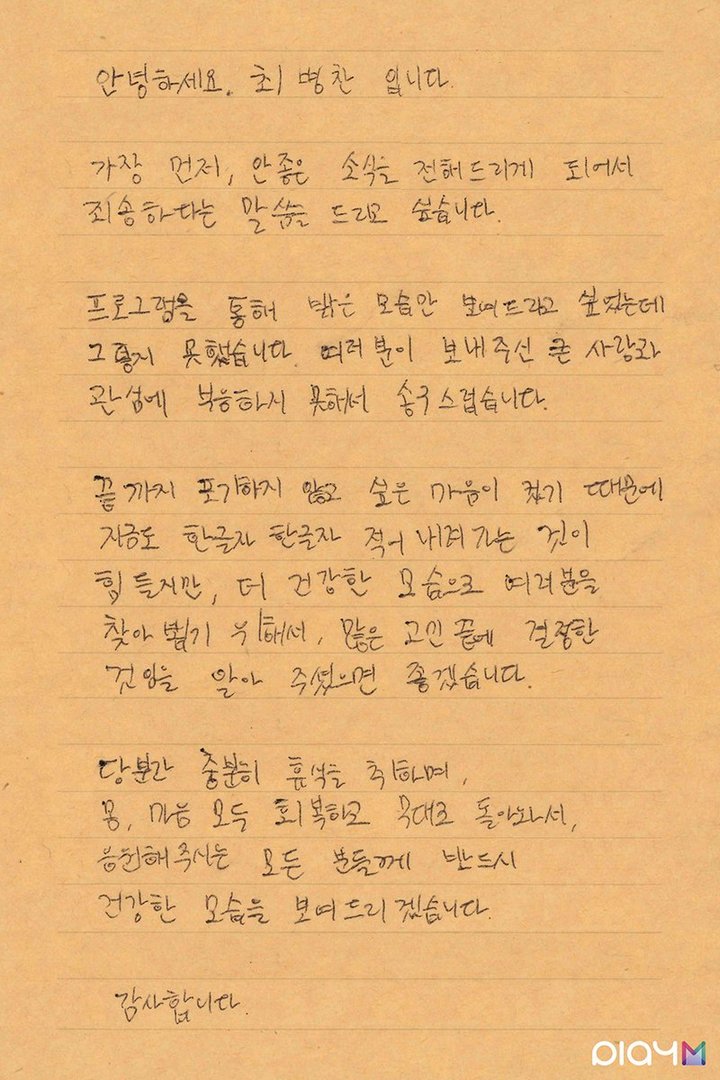 안녕하세요. 최병찬 입니다.
가장 먼저, 안좋은 소식을 전해드리게 되어서
죄송하다는 말씀을 드리고 싶습니다.
프로그램을 통해 밝은 모습만 보여드리고 싶었는데
그렇지 못했습니다. 여러분이 보내주신 큰 사랑과
관심에 부응하지 못해서 송구스럽습니다.
끝까지 포기하지 않고 싶은 마음이 컸기 때문에
지금도 한글자 한글자 적어 내려가는 것이
힘들지만, 더 건강한 모습으로 여러분을
찾아 뵙기 위해서, 많은 고민 끝에 결정한
것임을 알아 주셨으면 좋겠습니다.
당분간 충분히 휴식을 취하며,
몸, 마음 모두 회복하고 무대로 돌아와서,
응원해주시는 모든 분들께 반드시
건강한 모습을 보여드리겠습니다.
감사합니다.
PlayM